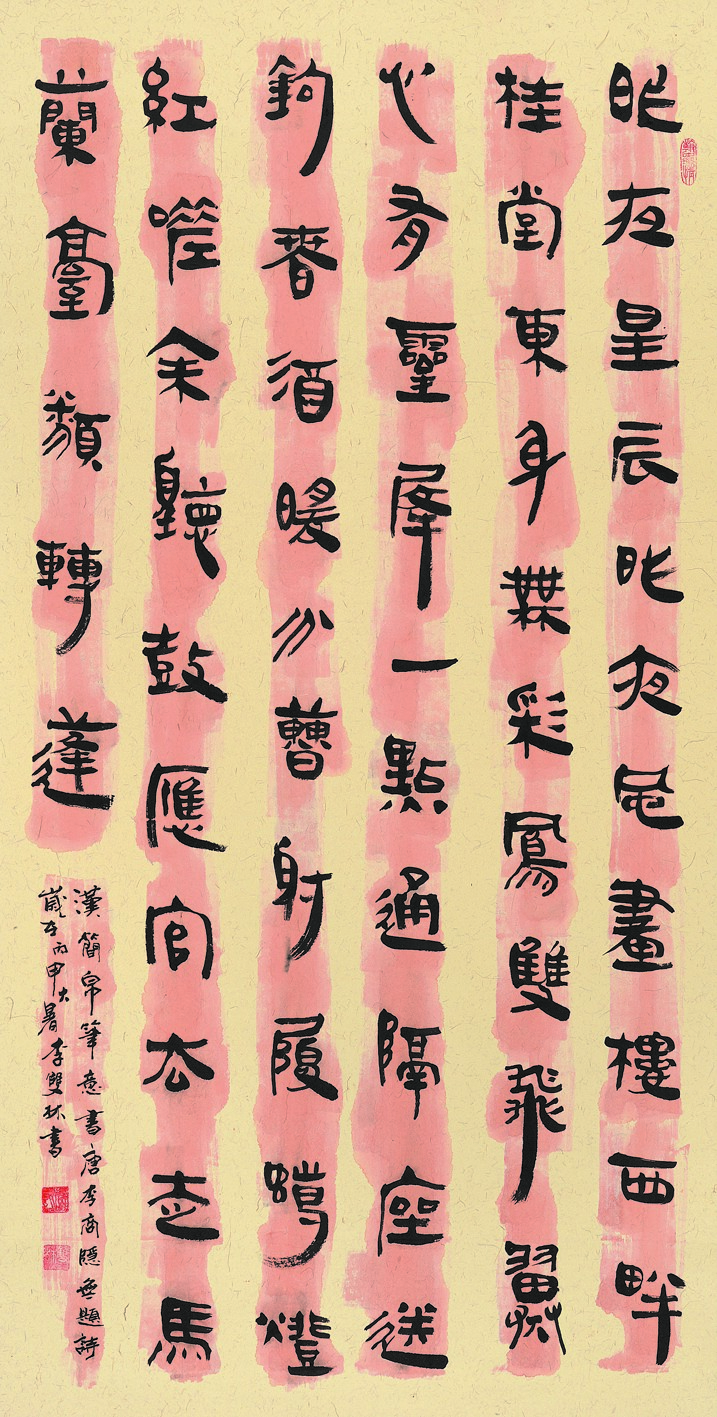 昨夜星辰昨夜風畫樓西畔
桂堂東身無彩鳳雙飛翼
心有靈犀一點通隔座送
鉤春酒暖分曹射覆蠟燈
紅嗟余聽鼓應官去走馬
蘭臺類轉蓬
漢簡帛筆意書唐李商隱無題詩
歲在丙申大暑李雙林書